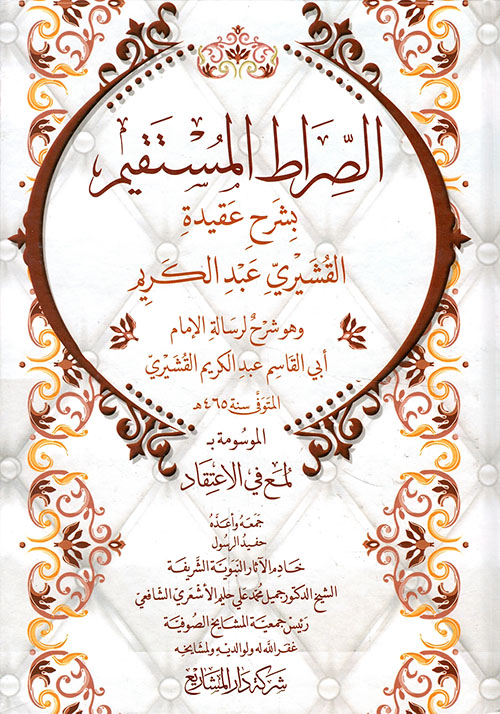 الصِّرَاط المُسْتَقِيم
بِشَرْحِ عَقِيدَةِ
القُشَيْرِيِّ عَبْدِ الكَرِيمِ
وهو شَرْحٌ لرسالةِ الإمام
أبي القاسم عبدِ الكريم القُشَيْريّ
المتوفَّى سنة ٤٦٥هـ
الموسومة بـ
لُمَع في الاعْتِقَاد
جَمَعَهُ وأعَدَّهُ
حفيد الرسول
خَادِم الآثار النبوية الشَّريفَة
الشيخ الدكتور جميل محمد علي حليم الأشعري الشافعيّ
رئيس جمعيّة المشايخ الصوفيَّة
غفر الله له ولوالديه ولمشايخه
شركة دار المشاريع